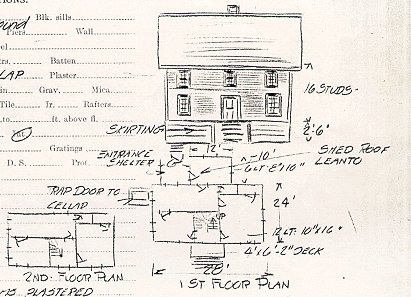 Blk. sills
ound
Piers Wall
Batten
LAP Plaster
Grav. Mica
Tile Ir. Rafters
ft. above fl.
Gratings
D. S. Prot.
16 STUDS-
2'-6"
SKIRTING
12'
10'
SHED ROOF
LEANTO
ENTRANCE
SHELTER
TRAP DOOR TO
CELLAR
24'
12 LT. 10"x16"
4'x6'-2" DECK
28'
2ND. FLOOR PLAN
1ST FLOOR PLAN
IS PLASTERED